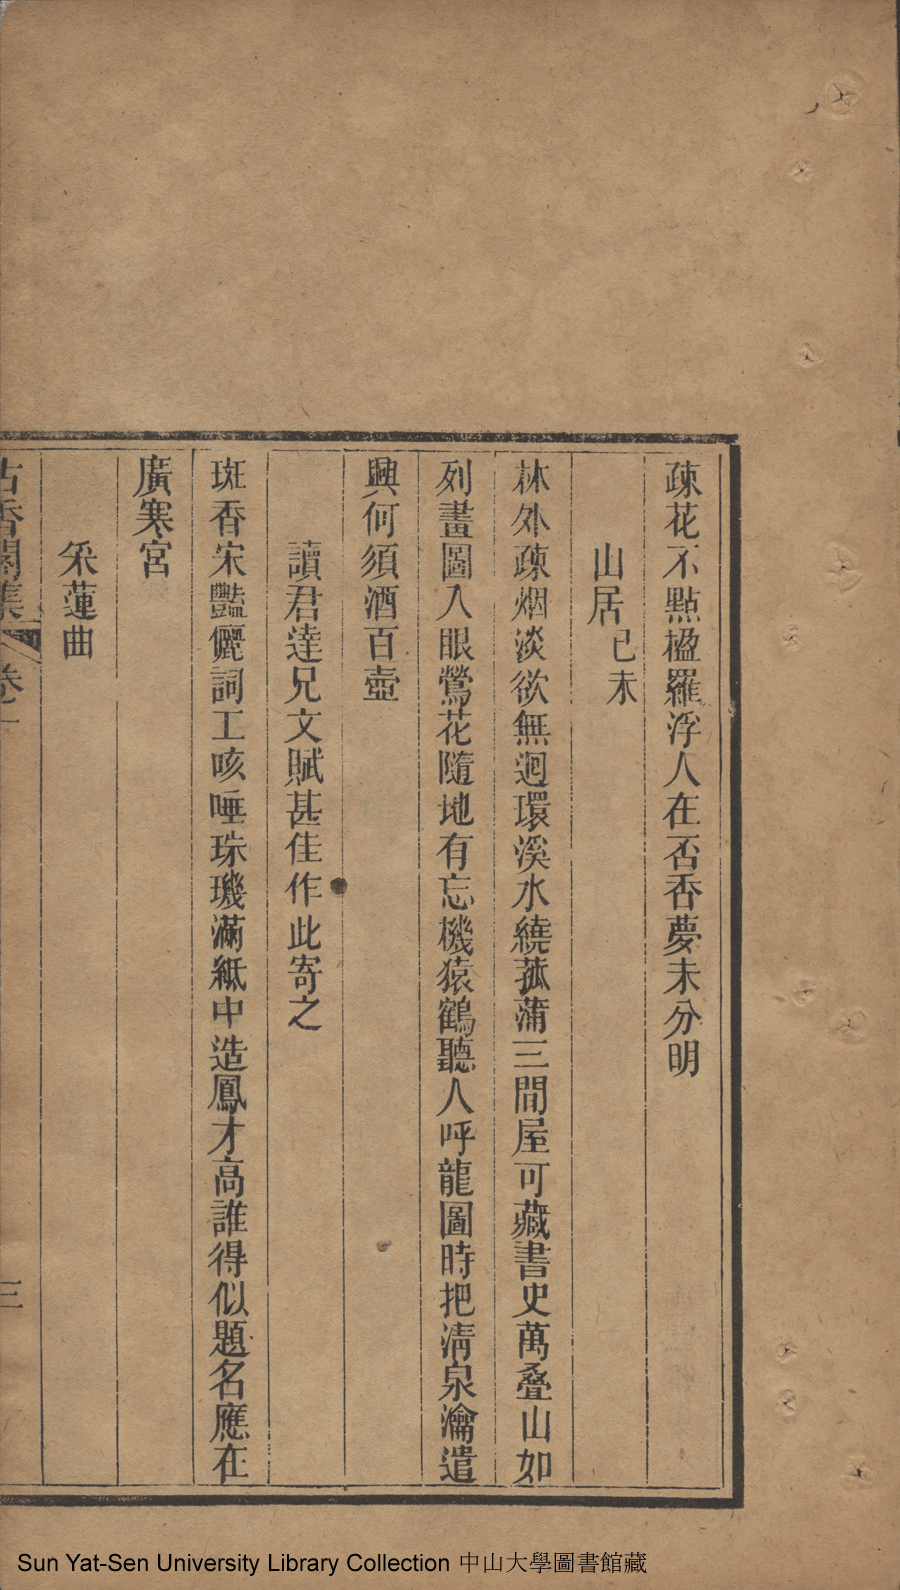 疎花不點楹羅浮人在否香夢未分明
山居己未
林外疎烟淡欲無迴環溪水繞菰蒲三間屋可藏書史萬叠山如
列畫圖入眼鶯花隨地有忘機猿鶴聽人呼龍圖時把清泉瀹遣
興何須酒百壺
讀君達兄文賦甚佳作此寄之
斑香宋豔儷詞工咳唾珠璣滿紙中造鳳才高誰得似題名應在
廣寒宮
采蓮曲
古香閣集 卷一 三
Sun Yat-Sen University Library Collection 中山大學圖書館藏